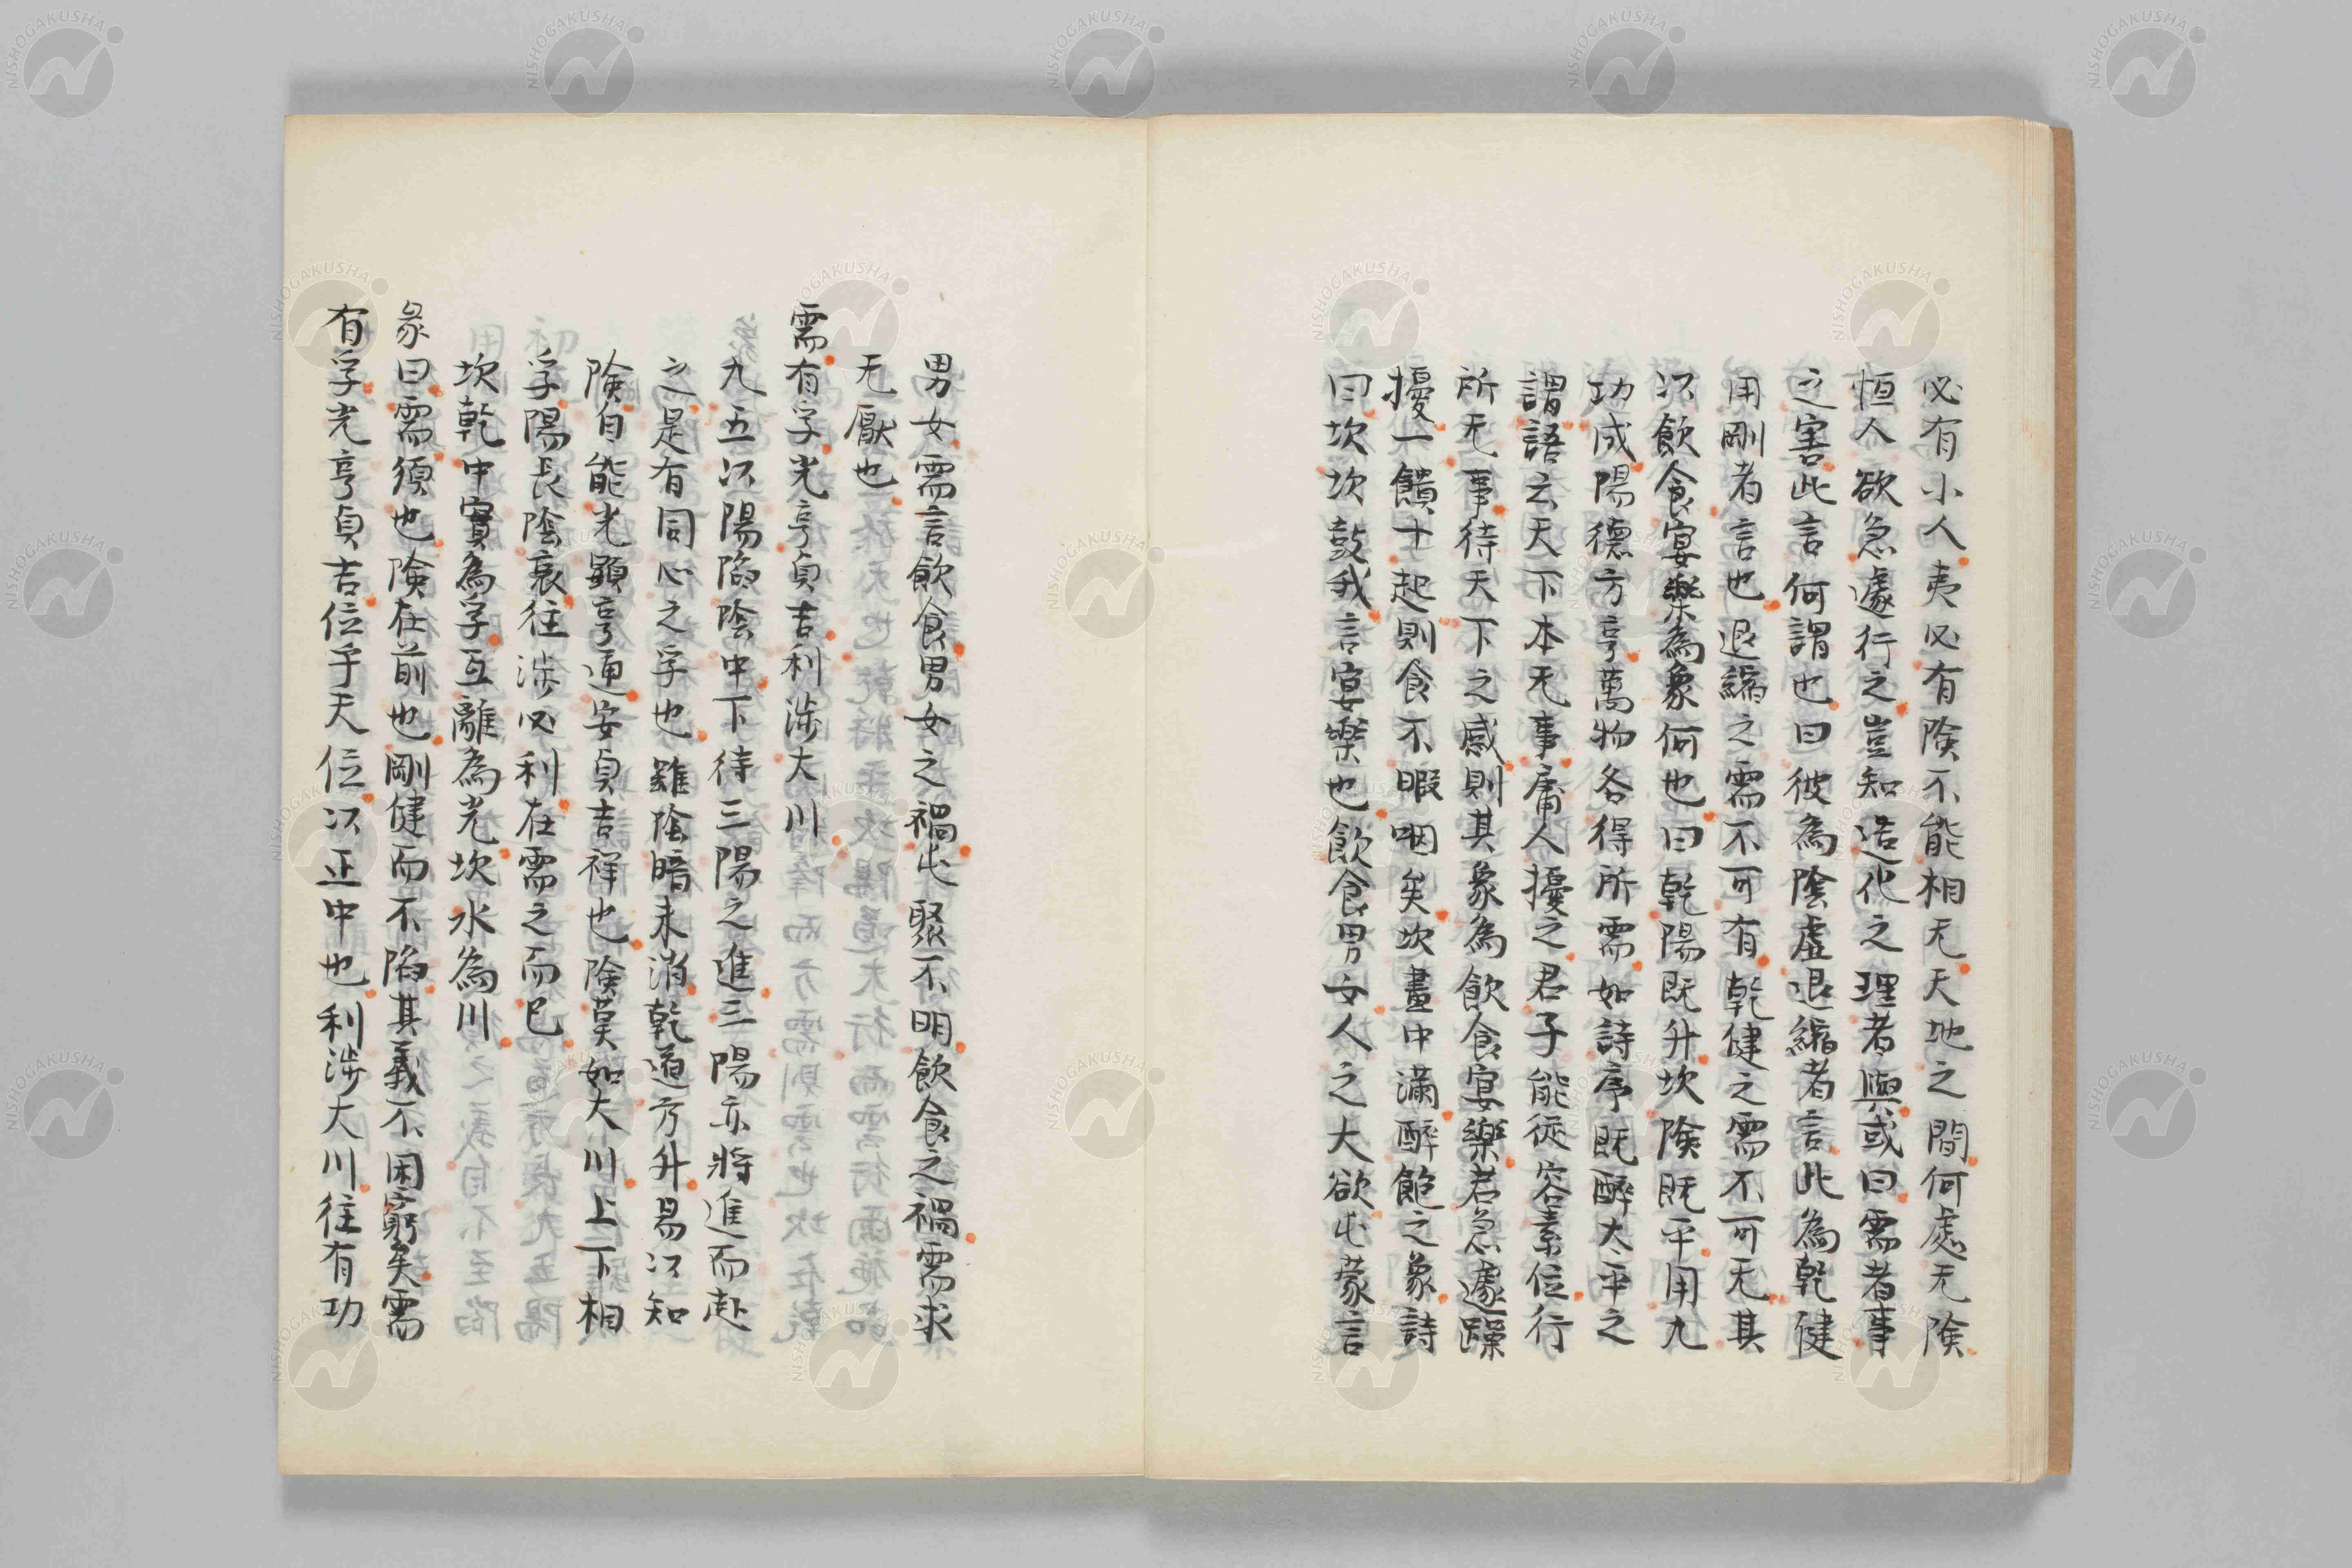 必有小人夷必有険不能相无天地之間何處无険
恒人欲急遽行之豈知造化之理者與或曰需者事
之害此言何謂也曰彼為陰虚退縮者言此為乾健
用剛者言也退縮之需不可有乾健之需不可无其
以飲食宴樂為象何也曰乾陽既升坎険既平用九
功成陽德方亨萬物各得所需如詩序既醉大平之
謂語云天下本无事庸人擾之君子能従容素位行
所无事待天下之感則其象為飲食宴樂若急遽躁
擾一饋十起則食不暇咽矣坎畫中滿醉飽之象詩
曰坎坎鼓我言宴樂也飲食男女人之大欲屯蒙言
男女需言飲食男女之禍屯聚不明飲食之禍需求
无厭也
需有孚光亨貞吉利渉大川
九五以陽陷陰中下待三陽之進三陽亦將進而赴
之是有同心之孚也雖陰暗未消乾道方升易以知
険自能光顕亨通安貞吉祥也険莫如大川上下相
孚陽長陰衰往渉必利在需之而已
坎乾中實為孚互離為光坎水為川
彖曰需須也険在前也剛健而不陷其義不困窮矣需
有孚光亨貞吉位乎天位以正中也利渉大川往有功
NISHOGAKUSHA